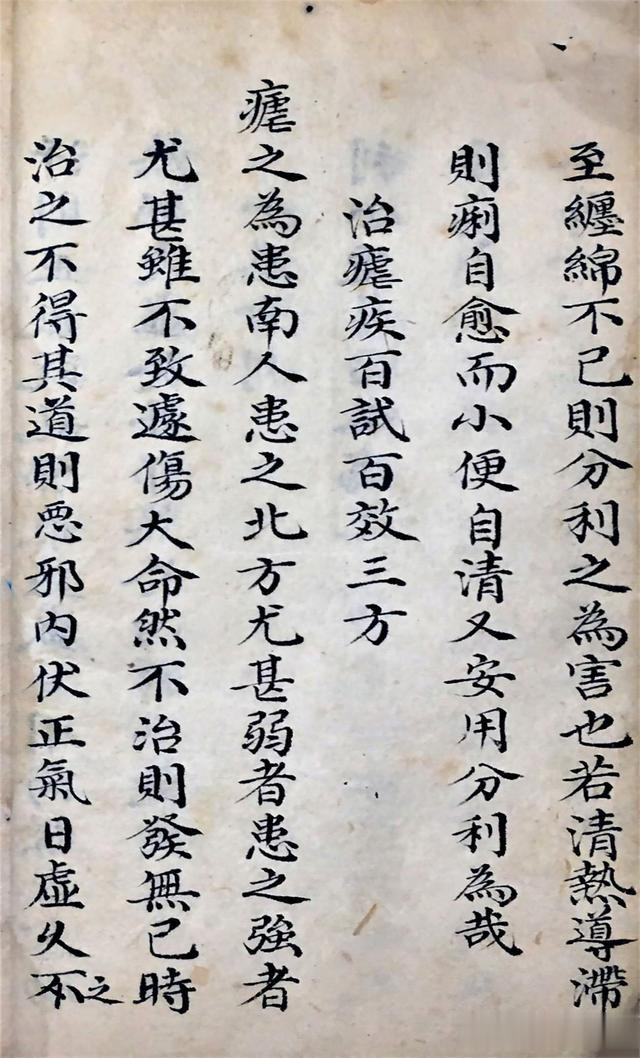 至纏綿不已則分利之為害也若清熱導滯
則痢自愈而小便自清又安用分利為哉
治瘧疾百試百效三方
瘧之為患南人患之北方尤甚弱者患之強者
尤甚雖不致遽傷大命然不治則發無已時
治之不得其道則惡邪內伏正氣日虛久之不